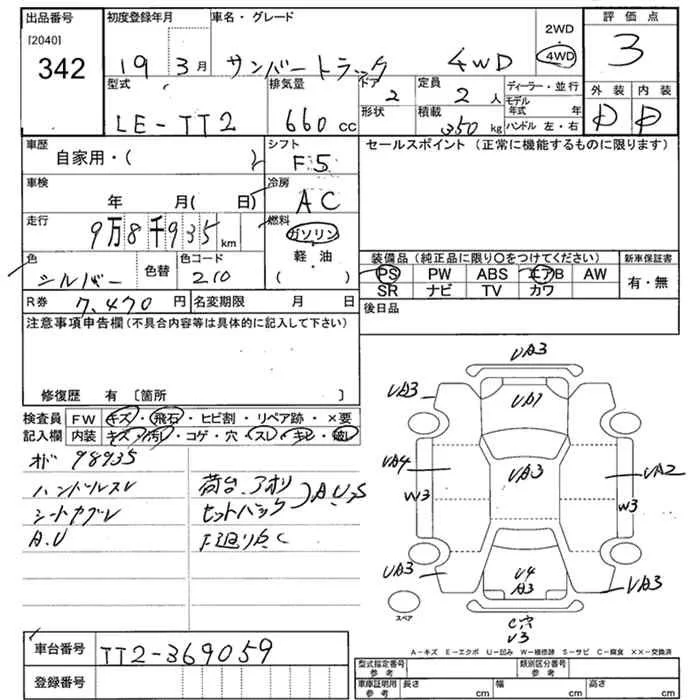 出品番号 初度登録年月 車名・グレード 2WD 評価点
[2040] 342 19 3月 サンバートラック 4WD 4WD 3
型式 排気量 ドア 2 定員 2人 ディーラー・並行 外装 内装
LE-TT2 660cc 形状 積載 350kg モデル年式 年 D D
ハンドル 左・右
車歴 自家用・( ) シフト F5 セールスポイント (正常に機能するものに限ります)
車検 年 月( 日) 冷房 AC
走行 9万8千935km 燃料 ガソリン 軽油 ( )
色 シルバー 色替 色コード 210
装備品(純正品に限り○をつけてください) 新車保証書
PS PW ABS エアB AW 有・無
SR ナビ TV カワ
R券 7,470円 名変期限 月 日 後日品
注意事項申告欄(不具合内容等は具体的に記入して下さい)
修復歴 有 〔箇所 〕
検査員 FW キズ・飛石・ヒビ割・リペア跡・×要
記入欄 内装 キズ・汚レ・コゲ・穴・スレ・キレ・破レ
オド 98935
ハンドルスレ 荷台.アオリ
シートヤブレ ヒットバック A.U.S
A.U 下廻り点C
UA3
UA3 UA7
UA4 UA3 UA2
W3 W3
UA3 U4 UA3
A3
C穴
U3
スペア
A-キズ E-エクボ U-凹み W-補修跡 S-サビ C-腐食 ××-交換済
車台番号 TT2-369059
登録番号
型式指定番号 参考 類別区分番号 参考
車庫証明用 参考 長さ cm 幅 cm 高さ cm